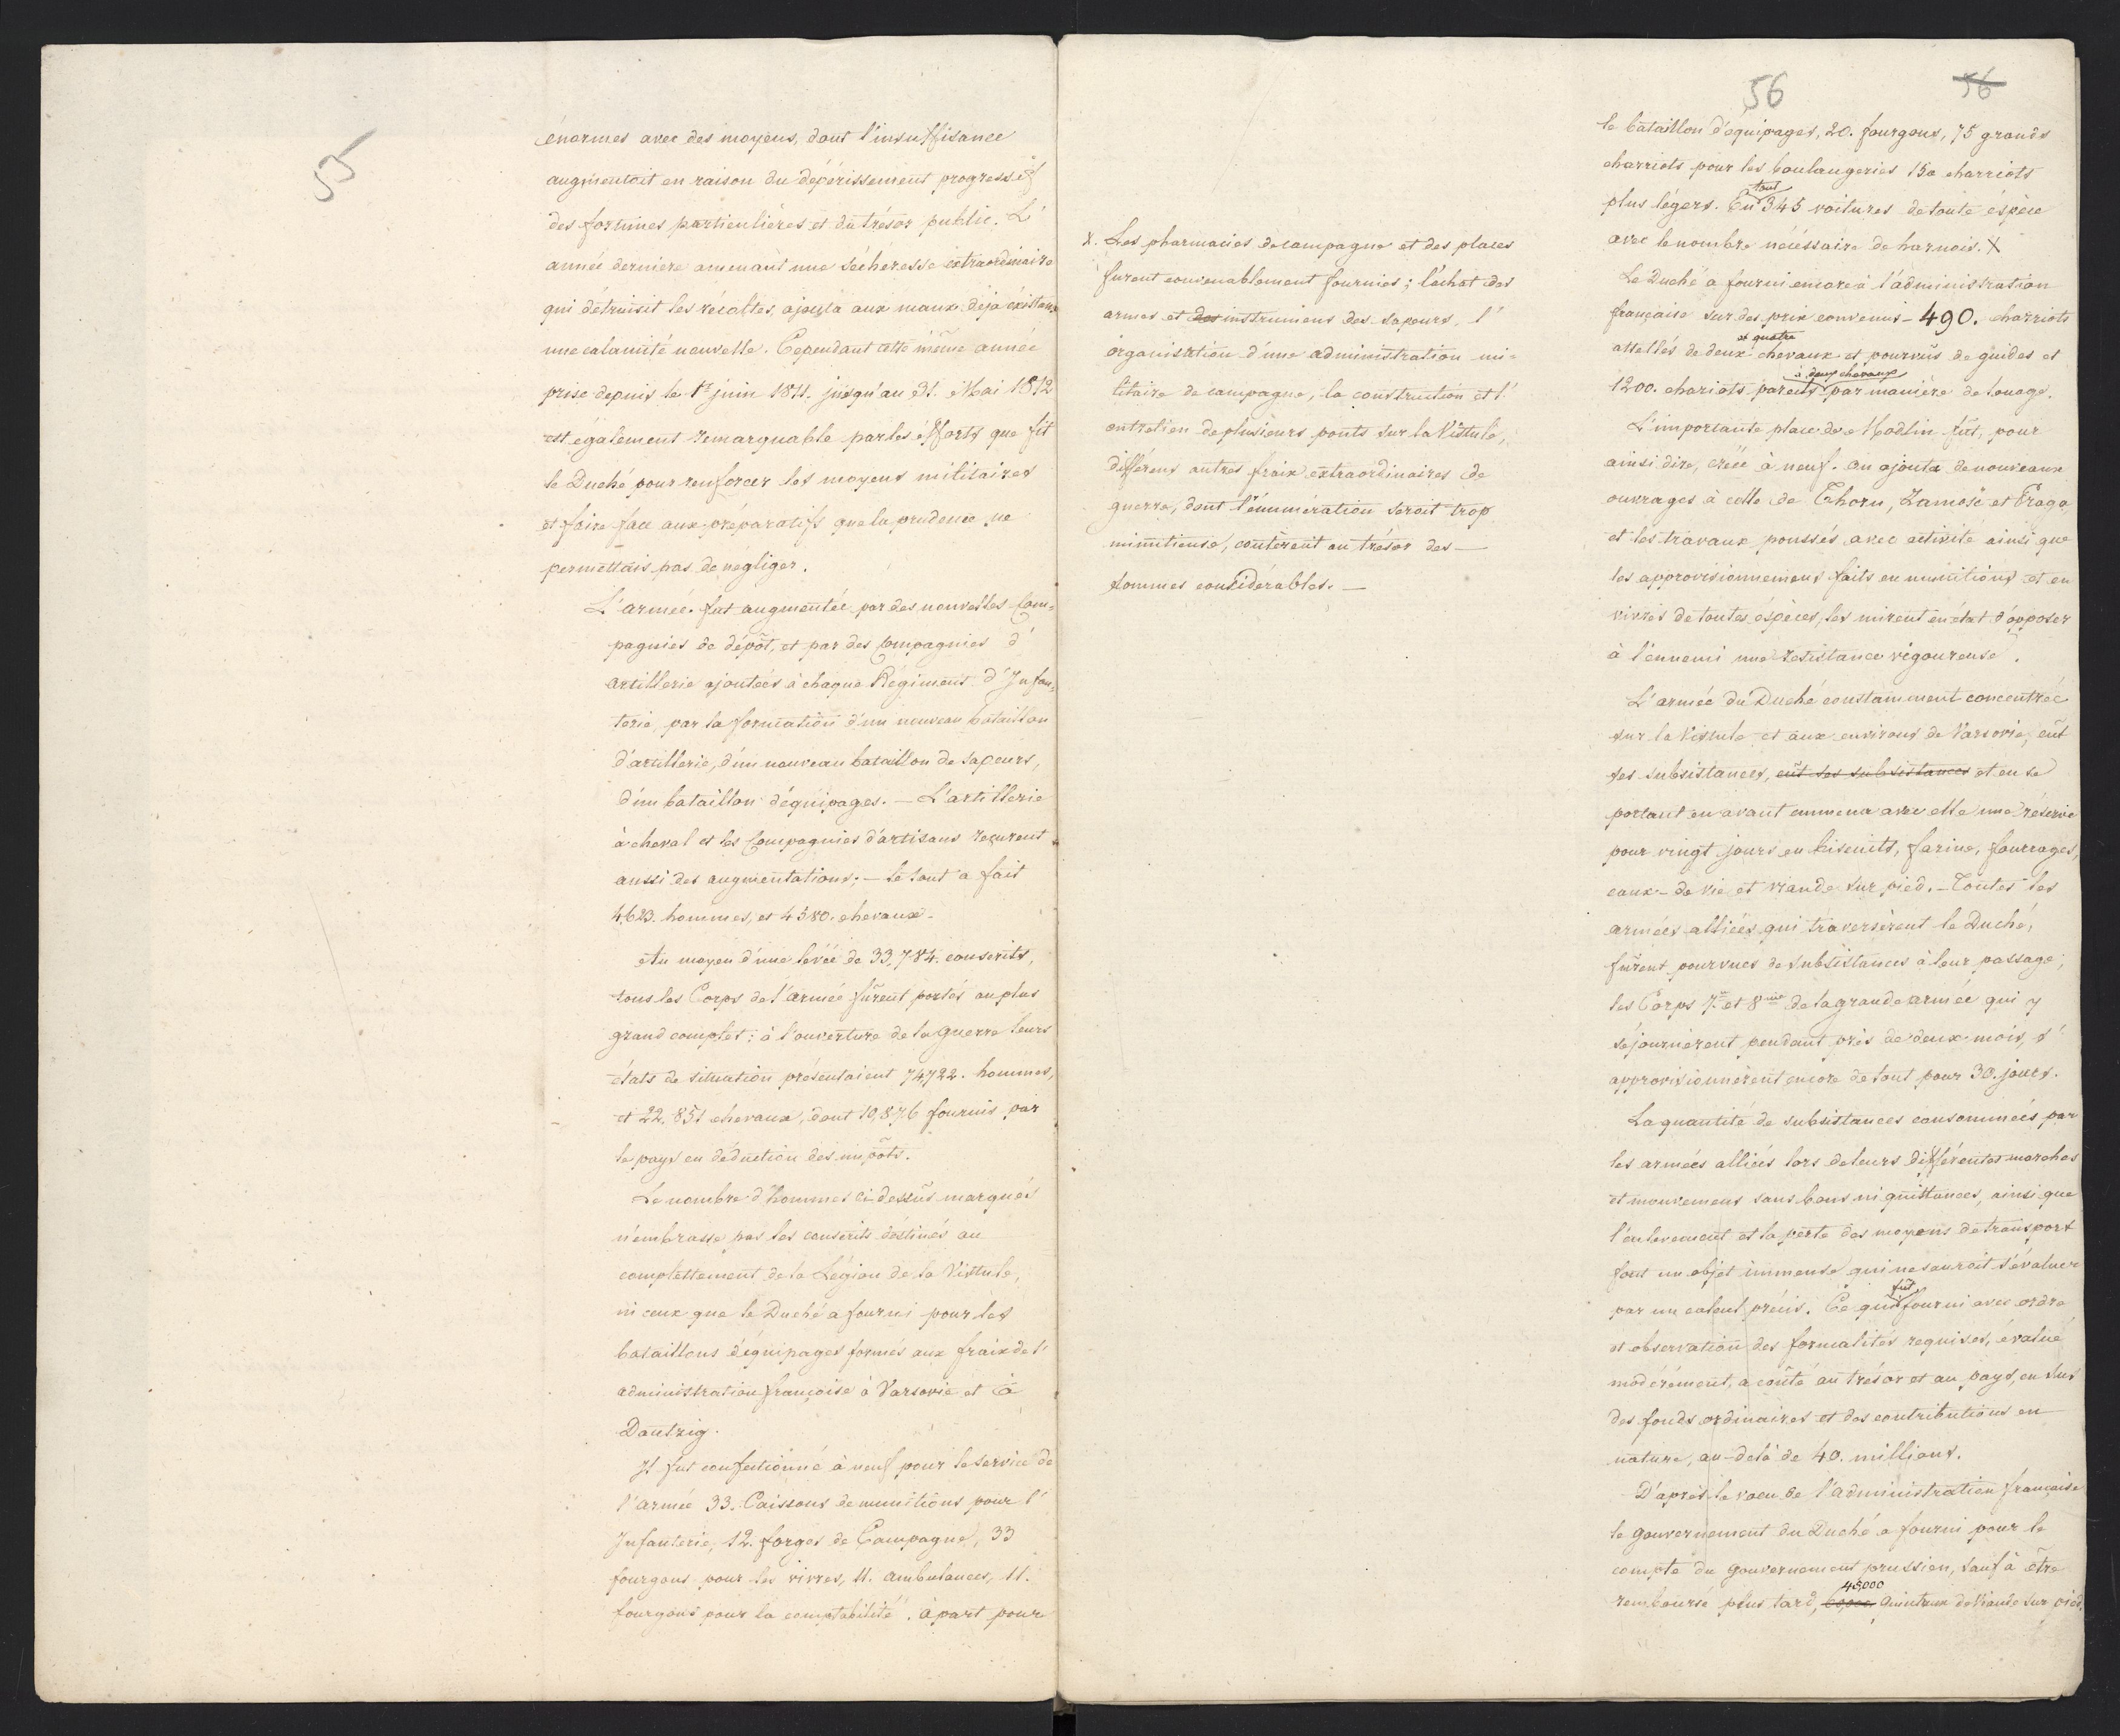 55
énormes avec des moyens, dont l'insuffisance
augmentoit en raison du dépérissement progressif
des fortunes particulières et du trésor public. L'
année derniere amenant une sécheresse extraordinaire
qui détruisit les récoltes, ajouta aux maux déja éxistans
une calamité nouvelle. Cependant cette même année
prise depuis le 1r juin 1811. jusqu'au 31. Mai 1812
est également remarquable par les efforts que fit
le Duché pour renforcer les moyens militaires
et faire face aux préparatifs que la prudence ne
permettais pas de négliger.
L'armée fut augmentée par des nouvelles Com=
pagnies de dépôt, et par des Compagnies d'
artillerie ajoutées à chaque Régiment d'Infan=
terie, par la formation d'un nouveau bataillon
d'artillerie, d'un nouveau bataillon de sapeurs,
d'un bataillon d'équipages. — L'artillerie
à cheval et les Compagnies d'artisans reçurent
aussi des augmentations; — le tout a fait
4,623. hommes, et 4580. chevaux.
Au moyen d'une levée de 33,784. conscrits,
tous les Corps de l'armée fûrent portés au plus
grand complet: à l'ouverture de la guerre leurs
états de situation présentaient 74,722. hommes,
et 22,851 chevaux, dont 10,876 fournis par
le pays en déduction des impôts.
Le nombre d'hommes ci dessus marqués
n'embrasse pas les conscrits déstinés au
complettement de la Légion de la Vistule,
ni ceux que le Duché a fourni pour les
bataillons d'équipages formés aux fraix de l'
administration françoise à Varsovie et à
Dantzig.
Il fut confectionné à neuf pour le service de
l'armée 33. Caissons de munitions pour l'
Infanterie, 12. forges de Campagne, 33
fourgons pour les vivres, 11. ambulances, 11.
fourgons pour la comptabilité. à part pour
X. Les pharmacies de campagne et des places
furent convenablement fournies; l'achat des
armes et des instrumens des sapeurs, l'
organisation d'une administration mi=
litaire de campagne, la construction et l'
entretien de plusieurs ponts sur la Vistule,
différens autres fraix extraordinaires de
guerre, dont l'énumération seroit trop
minutieuse, coutèrent au trésor des —
sommes considérables. —
56
56
le bataillon d'équipages, 20. fourgons, 75 grands
charriots pour les boulangeries 150 charriots
plus légers. En tout 345 voitures de toute éspèce
avec le nombre nécéssaire de harnois. X
Le Duché a fourni encore à l'administration
française sur des prix convenus — 490. charriots
attellés de deux et quatre chevaux et pourvûs de guides et
1200. chariots pareils à deux chevaux par manière de louage.
L'importante place de Modlin fut, pour
ainsi dire, créée à neuf. on ajouta de nouveaux
ouvrages à celle de Thorn, Zamość et Praga
et les travaux poussés avec activité ainsi que
les approvisionnemens faits en munitions et en
vivres de toutes éspèces, les mirent en état d'opposer
à l'ennemi une résistance vigoureuse.
L'armée du Duché constamment concentrée
sur la Vistule et aux environs de Varsovie, eut
ses subsistances, eût ses subsistances et en se
portant en avant emmena avec elle une réserve
pour vingt jours en biscuits, farine, fourrages,
eaux-de vie et viande sur pied. — Toutes les
armées alliées qui traversèrent le Duché,
fûrent pourvues de subsistances à leur passage;
les Corps 7me et 8me de la grande armée qui y
séjournèrent pendant près de deux mois, s'
approvisionnèrent encore de tout pour 30. jours.
La quantité de subsistances consommées par
les armées alliées lors de leurs différentes marches
et mouvemens sans bons ni quittances, ainsi que
l'enlevement et la perte des moyens de transport
font un objet immense qui ne sauroit s'évaluer
par un calcul précis. Ce qui fut fourni avec ordre
et observation des formalités requises, évalué
modérément, a coûté au trésor et au pays, en sus
des fonds ordinaires et des contributions en
nature, au-delà de 40. millions.
D'après le voeu de l'administration française
le gouvernement du Duché a fourni pour le
compte du gouvernement prussien, sauf à être
remboursé plus tard, 45,000 quintaux de Viande sur pied,